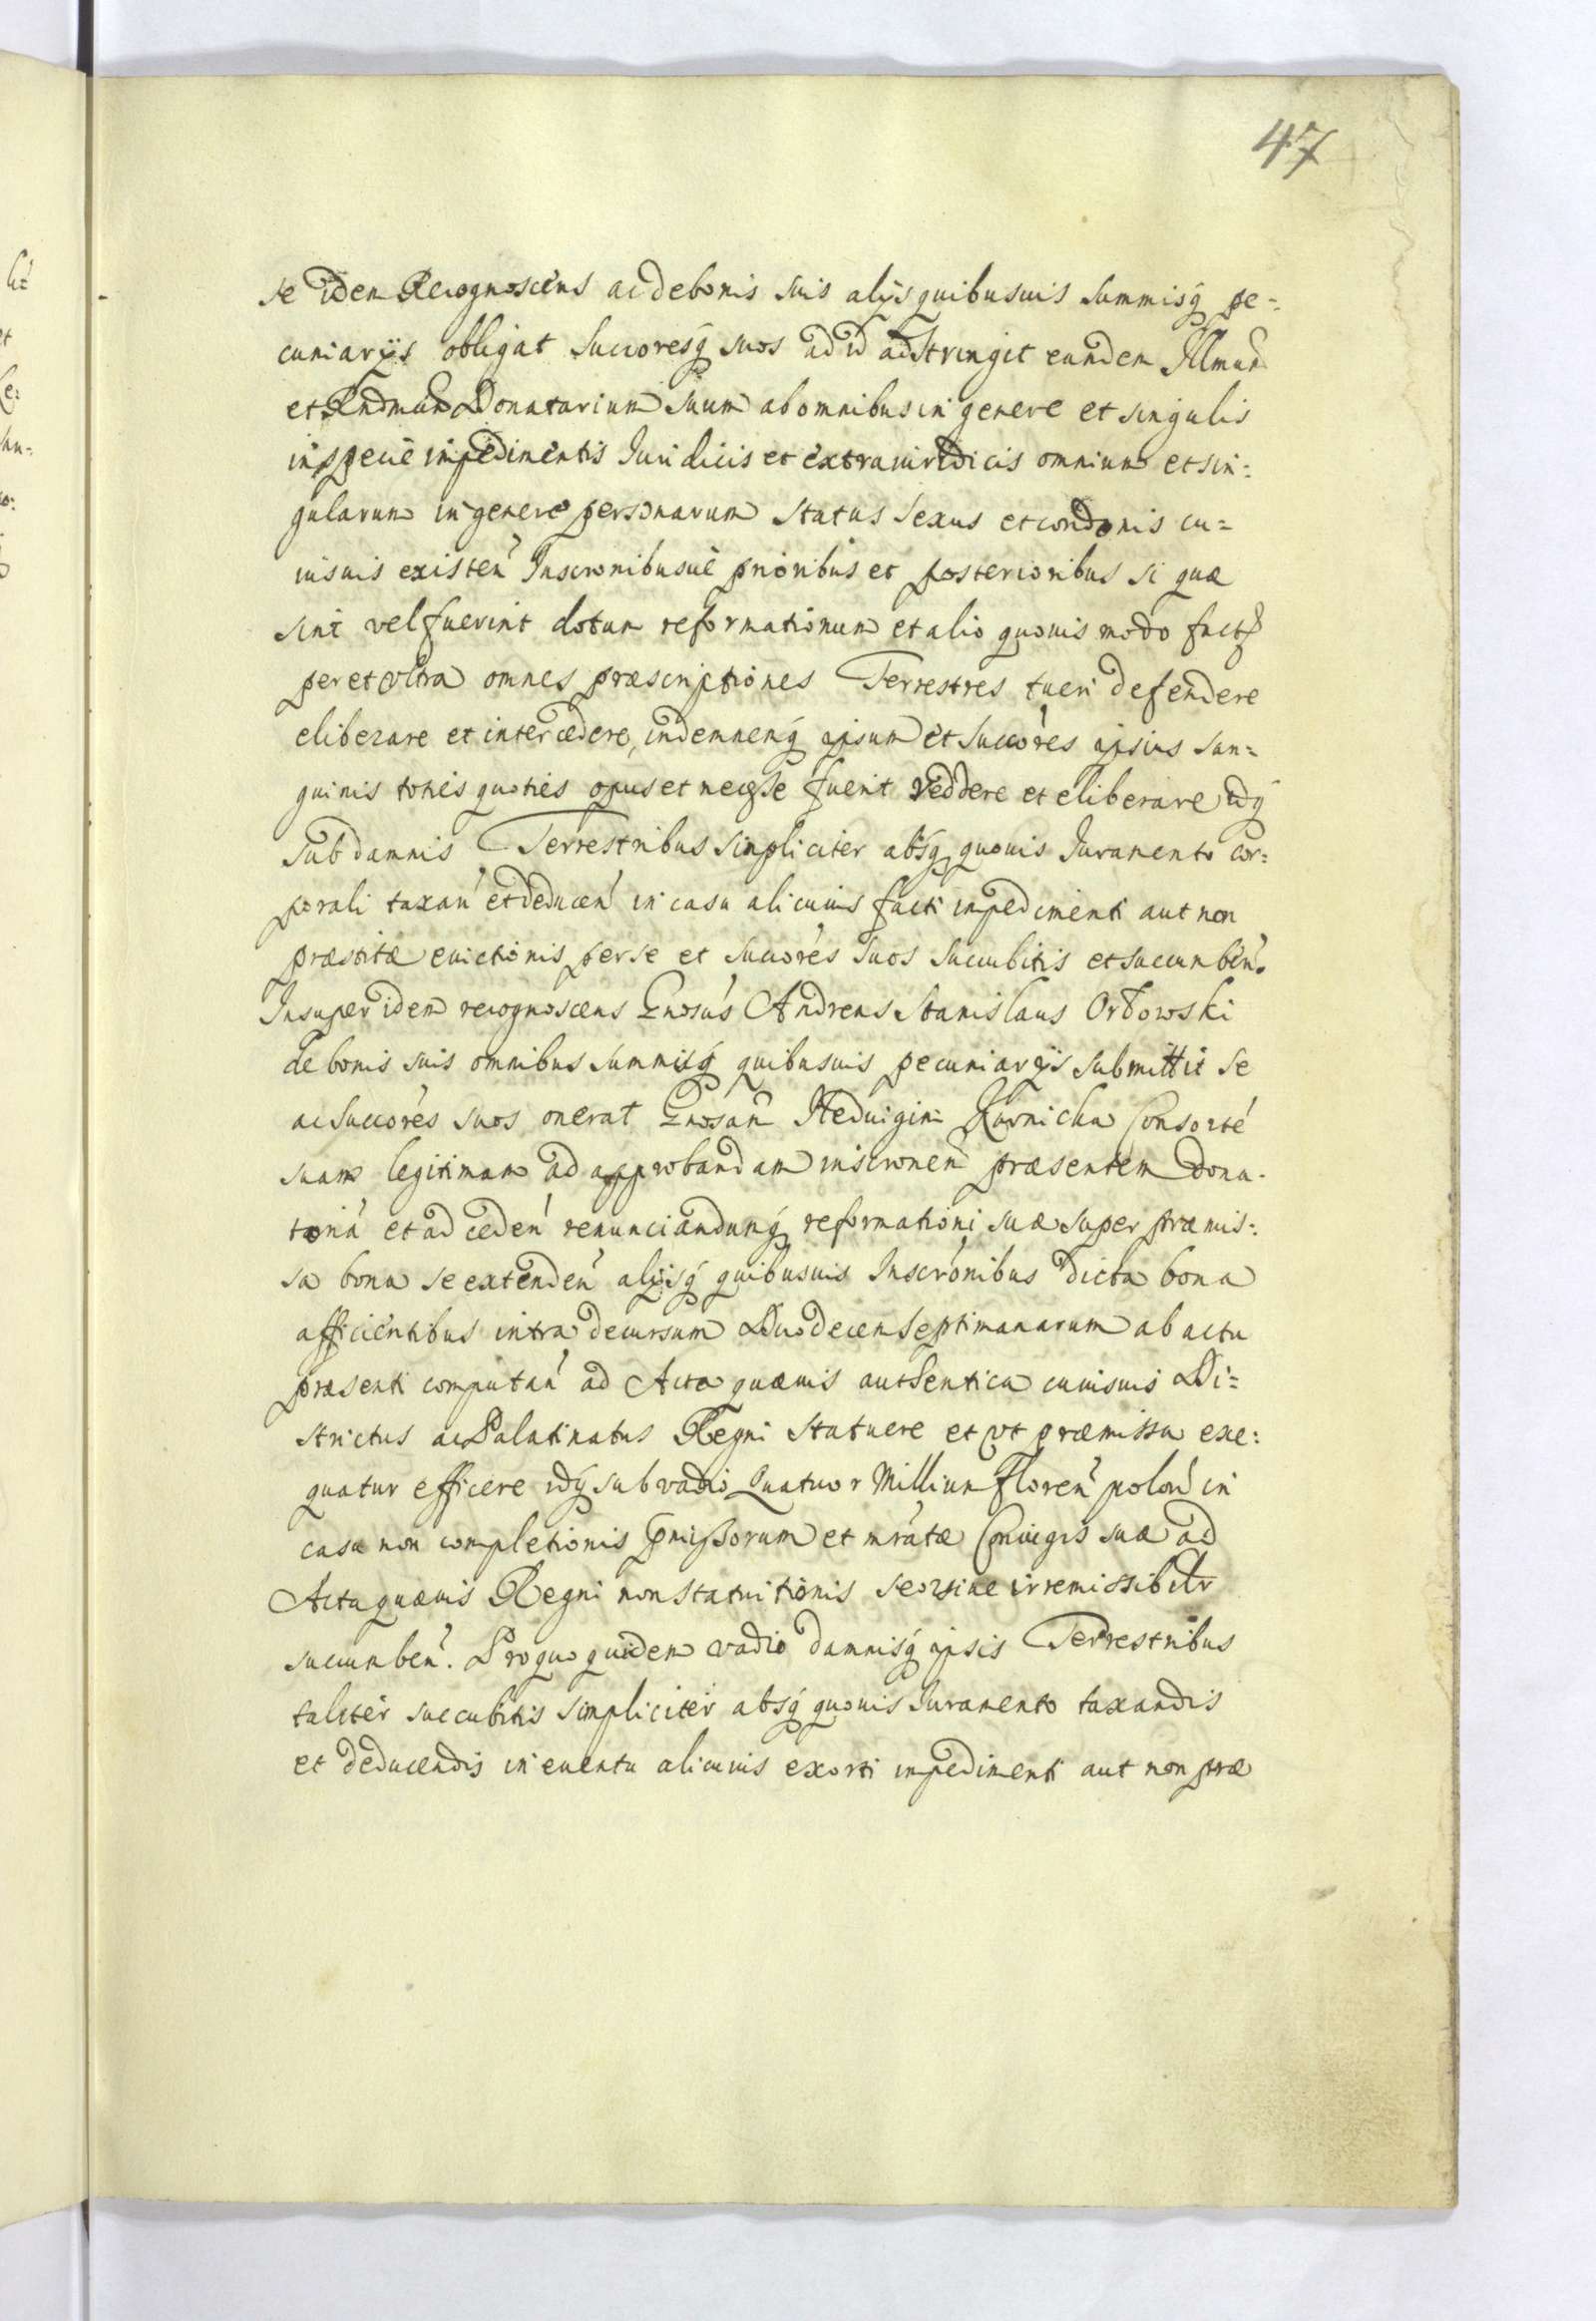 47
se idem Recognoscens ac de bonis suis alijs quibusuis summisq́ pe=
cuniarijs obligat succoresq́ suos ad id adstringit eundem Illmum
et Rndmum Donatarium suum ab omnibus in genere et singulis
in specie impedimentis Iuridicis et extraiuridicis omnium et sin=
gularum in genere personarum status sexus et condonis cu=
iusuis existen̄ Inscronibusue prioribus et posterioribus si quæ
sint vel fuerint dotum reformationum et alio quouis modo fact
per et vltra omnes præscriptiones Terrestres tueri defendere
eliberare et intercedere, indemnemq́ ipsum et succóres ipsius san=
guinis toties quoties opus et necesse fuerit reddere et eliberare idq́
sub damnis Terrestribus simpliciter absq́ quouis Iuramento cor=
porali taxań et deducen̄ in casu alicuius facti impedimenti aut non
præstitæ euictionis per se et succóres suos succubitis et succumben̄.
Insuper idem recognoscens Gnosús Andreas Stanislaus Orłowski
de bonis suis omnibus summisq́ quibusuis pecuniarijs submittit se
ac succóres suos onerat Gnosam̄ Heduigim Consorté
suam legitimam ad approbandam inscronem præsentem dona-
toriá et ad ceden̄ renunciandumq́ reformationi suæ super præmis=
sa bona se extenden̄ alijsq́ quibusuis Inscrónibus dicta bona
afficientibus intra decursum Duodecem septimanarum ab actu
præsenti computań ad Acta quæuis authentica cuiusuis Di=
strictus ac Palatinatus Regni statuere et vt præmissa exe=
quatur efficere idq́ sub vadio Quatuor Millium floren̄ polon̄ in
casu non completionis pmissorum et mratæ Coniugis suæ ad
Acta quæuis Regni non statuitionis seorsiue irremissibiltr
succumben̄. Pro quo quidem vadio damnisq́ ipsis Terrestribus
taliter succubitis simpliciter absq́ quouis Iuramento taxandis
et deducendis in euentu alicuius exorti impedimenti aut non præ